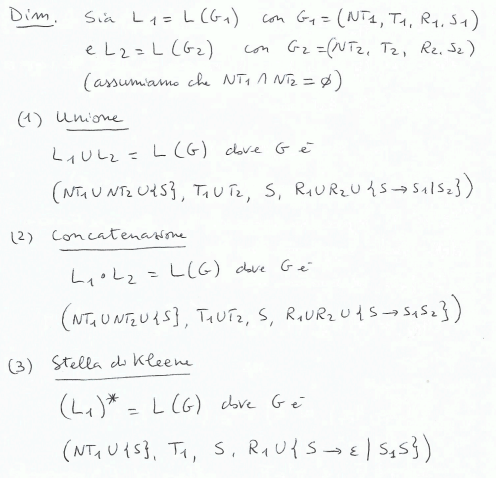 Dim. Sia L₁ = L(G₁) con G₁ = (NT₁, T₁, R₁, S₁)
e L₂ = L(G₂) con G₂ = (NT₂, T₂, R₂, S₂)
(assumiamo che NT₁ ∩ NT₂ = ∅)
(1) Unione
L₁ ∪ L₂ = L(G) dove G è
(NT₁ ∪ NT₂ ∪ {S}, T₁ ∪ T₂, S, R₁ ∪ R₂ ∪ {S → S₁ | S₂})
(2) Concatenazione
L₁ • L₂ = L(G) dove G è
(NT₁ ∪ NT₂ ∪ {S}, T₁ ∪ T₂, S, R₁ ∪ R₂ ∪ {S → S₁S₂})
(3) Stella di Kleene
(L₁)* = L(G) dove G è
(NT₁ ∪ {S}, T₁, S, R₁ ∪ {S → ε | S₁S})